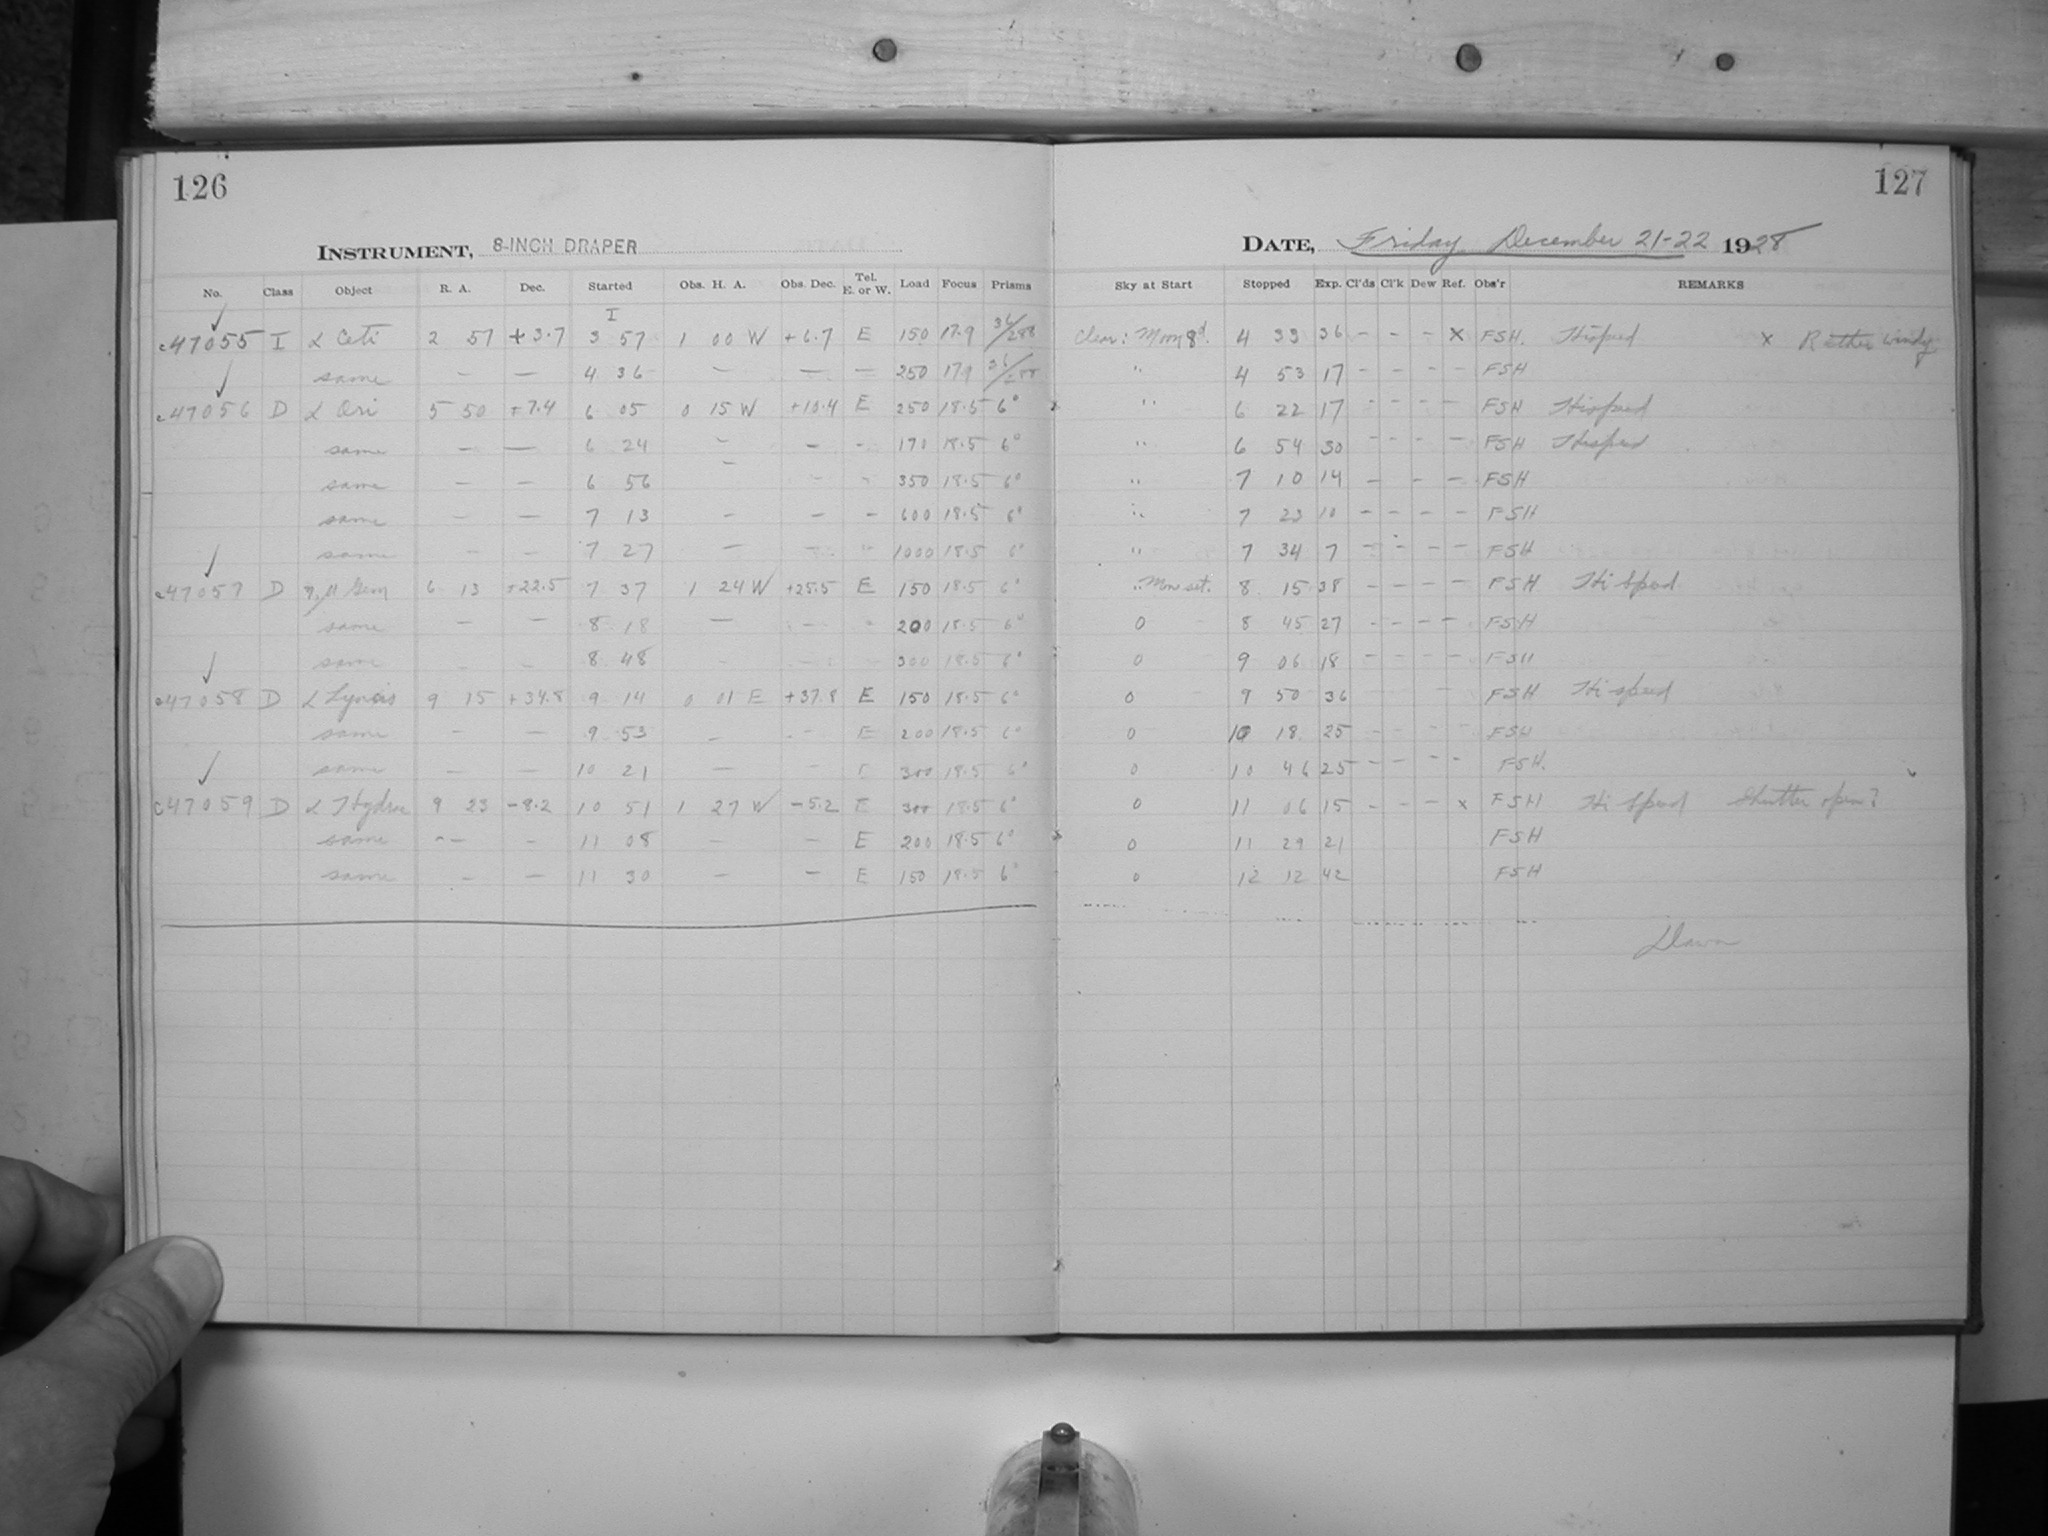 126
INSTRUMENT, 8-INCH DRAPER
No. Class Object R. A. Dec. Started Obs. H. A. Obs. Dec. Tel. E. or W. Load Focus Prisms
I
c47055 I α Ceti 2 57 +3.7 3 57 1 00 W +6.7 E 150 17.9 36/288
same — — 4 36 — — — 250 179
c47056 D α Ori 5 50 +7.4 6 05 0 15 W +10.4 E 250 18.5 6°
same — — 6 24 — — - 170 18.5 6°
same — — 6 56 350 18.5 6°
same — — 7 13 — — — 600 18.5 6°
same — — 7 27 — 1000 18.5 6°
c47057 D η, μ Gem 6 13 +22.5 7 37 1 24 W +25.5 E 150 18.5 6°
same — — 8 18 — 200 18.5 6°
same 8 48 300 18.5 6°
c47058 D α Lyncis 9 15 +34.8 9 14 0 01 E +37.8 E 150 18.5 6°
same — — 9 53 — E 200 18.5 6°
same — — 10 21 — E 300 18.5 6°
c47059 D α Hydrae 9 23 -8.2 10 51 1 27 W -5.2 E 300 18.5 6°
same — - 11 08 — — E 200 18.5 6°
same — — 11 30 — — E 150 18.5 6°
127
DATE, Friday December 21-22 1928
Sky at Start Stopped Exp. Cl'ds Cl'k Dew Ref. Obs'r REMARKS
Clear: Moon 8d. 4 33 36 — - - x FSH. Hispeed x Rather windy
" 4 53 17 - - - - FSH
" 6 22 17 - - - - FSH Hispeed
" 6 54 30 - - - - FSH Hispeed
" 7 10 14 - - - FSH
" 7 23 10 - - - - FSH
" 7 34 7 - - - - FSH
" Moon set. 8 15 38 - - - - FSH Hi Speed
0 8 45 27 - - - - FSH
0 9 06 18 - - - - FSH
0 9 50 36 FSH Hi speed
0 10 18 25 FSH
0 10 46 25 - - - - FSH.
0 11 06 15 - - - x FSH Hi Speed Shutter open?
0 11 29 21 FSH
0 12 12 42 FSH
Dawn